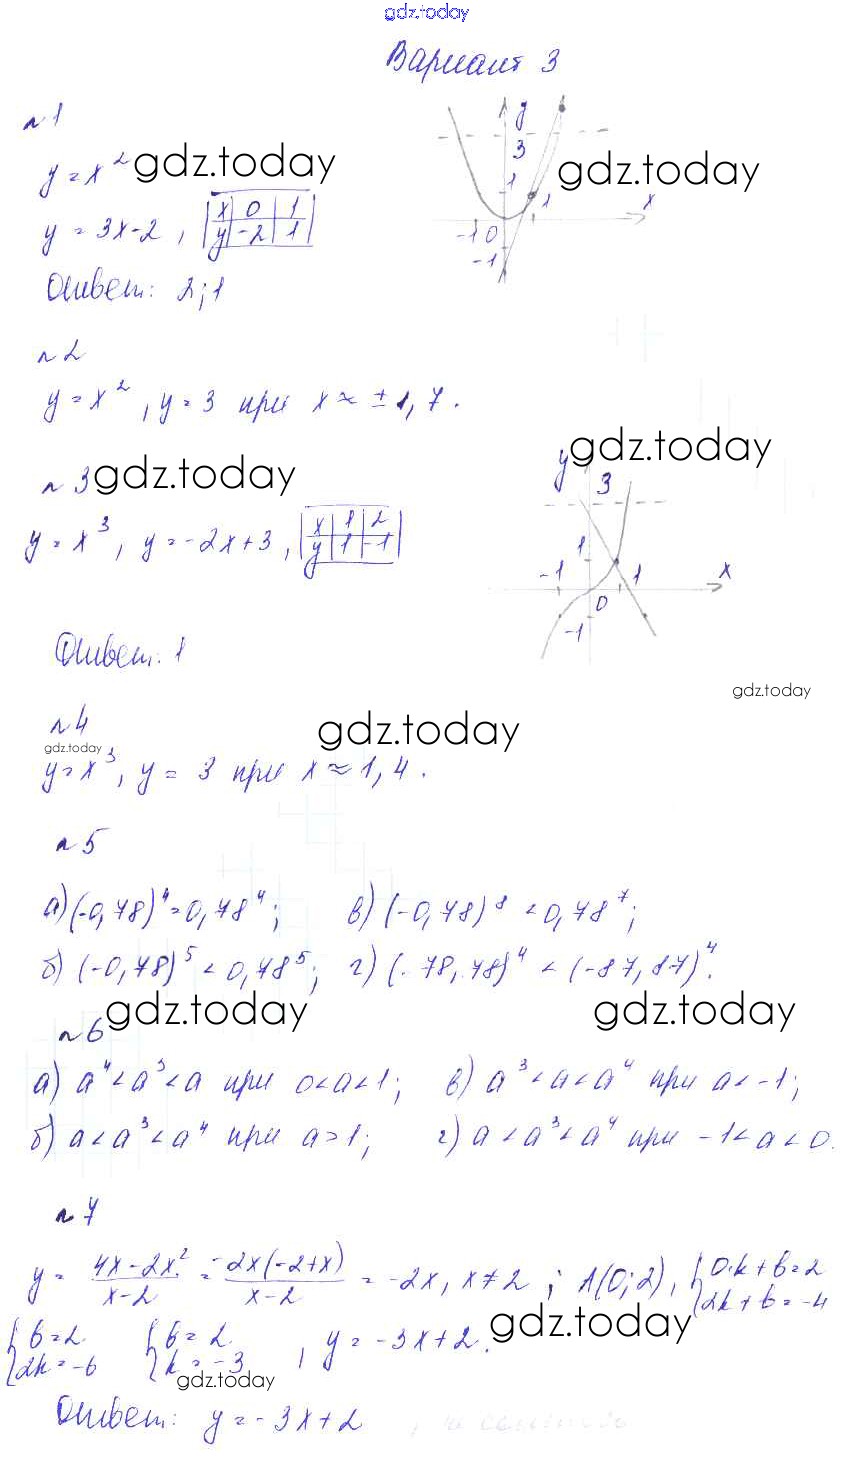 gdz.today
Вариант 3
n1
y = x² gdz.today
gdz.today
y = 3x-2, | x | 0 | 1 |
| y | -2 | 1 |
y
3
1
x
-1 0 1
-1
Ответ: 2; 1
n2
y = x², y = 3 при x ≈ ± 1,7.
gdz.today
n3 gdz.today
y = x³, y = -2x+3, | x | 1 | 2 |
| y | 1 | -1 |
y
3
1
-1 1 x
0
-1
Ответ: 1
gdz.today
n4
gdz.today
gdz.today
y = x³, y = 3 при x ≈ 1,4.
n5
а) (-0,78)⁴ = 0,78⁴; в) (-0,78)⁸ < 0,78⁷;
б) (-0,78)⁵ < 0,78⁵; г) (-78,78)⁴ < (-87,87)⁴.
gdz.today gdz.today
n6
а) a⁴ < a³ < a при 0 < a < 1; в) a³ < a < a⁴ при a < -1;
б) a < a³ < a⁴ при a > 1; г) a < a³ < a⁴ при -1 < a < 0.
n7
y = (4x - 2x²)/(x-2) = -2x(-2+x)/(x-2) = -2x, x ≠ 2; A(0; 2), { 0·k + b = 2
{ 2k + b = -4
gdz.today
{ b = 2 { b = 2
{ 2k = -6 { k = -3 , y = -3x + 2.
gdz.today
Ответ: y = -3x + 2